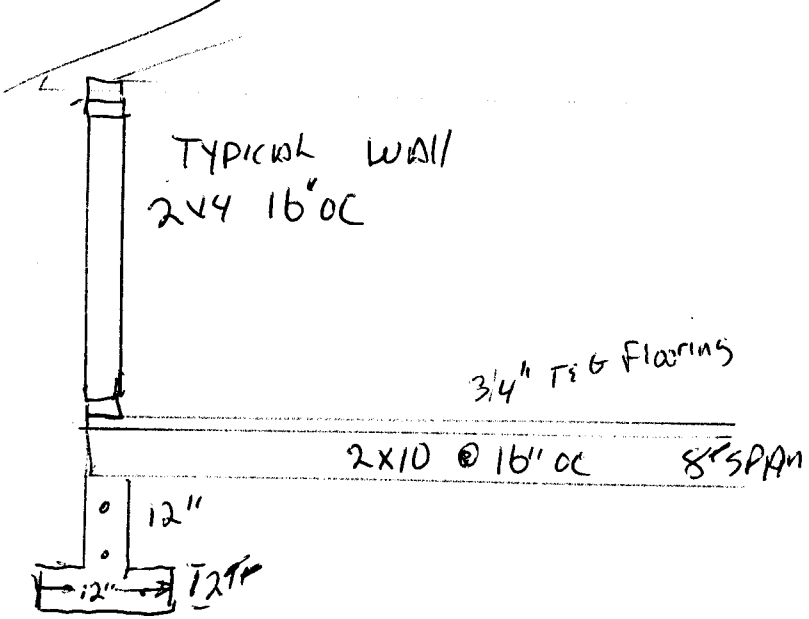 TYPICAL WALL
2X4 16" OC
3/4" T&G Flooring
2X10 @ 16" OC 8' SPAN
12"
12"